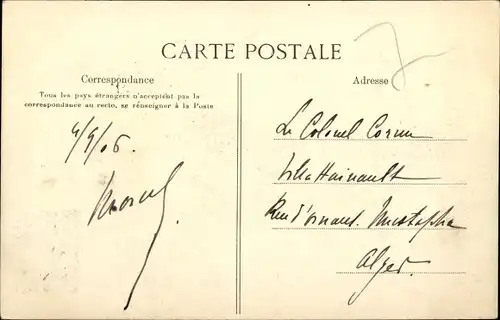 CARTE POSTALE
Correspondance
Tous les pays étrangers n'acceptent pas la
correspondance au recto, se rénseigner à la Poste
Adresse
4/9/06.
Le Colonel
Villa Hainault
Mustapha
Alger.